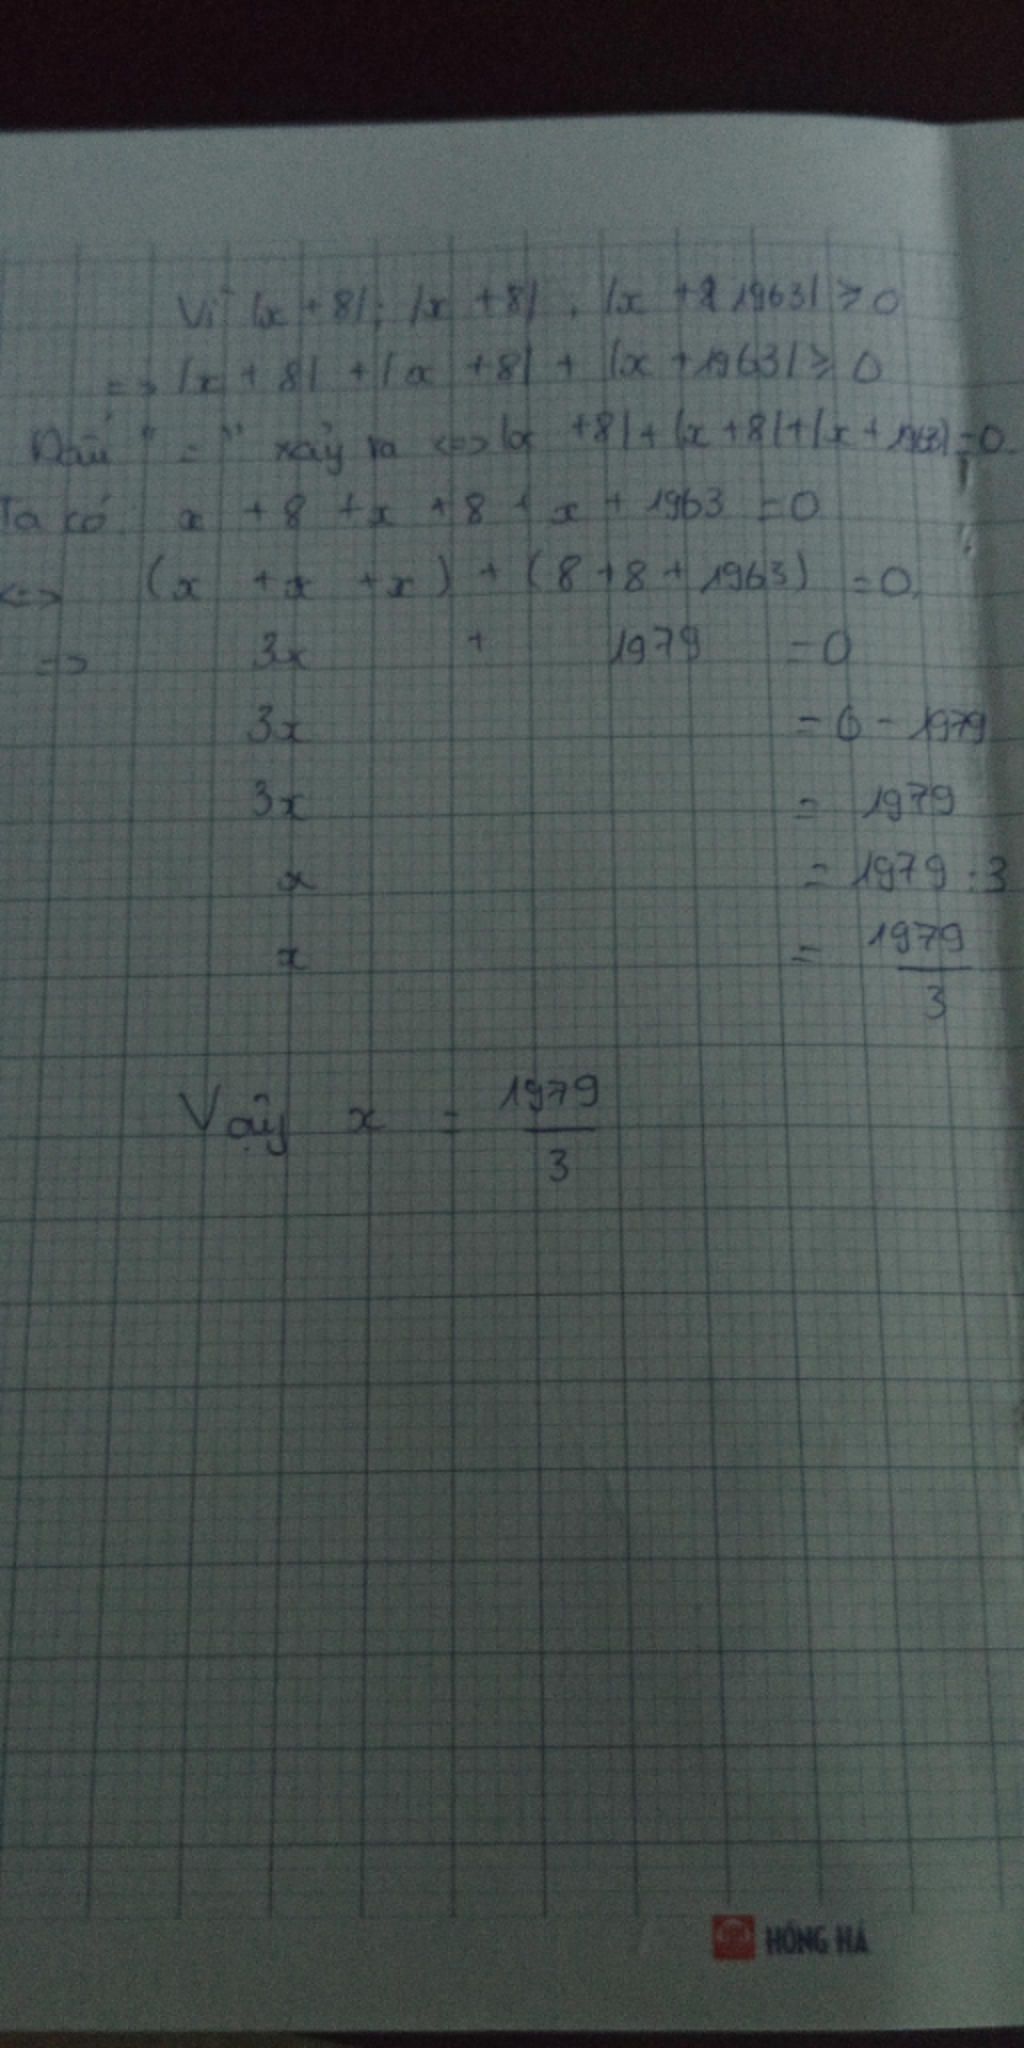 Vì |x + 8| ; |x + 8| , |x + 1963| ≥ 0
=> |x + 8| + |x + 8| + |x + 1963| ≥ 0
Dấu " = " xảy ra <=> |x + 8| + |x + 8| + |x + 1963| = 0.
Ta có x + 8 + x + 8 + x + 1963 = 0
<=> (x + x + x) + (8 + 8 + 1963) = 0.
=> 3x + 1979 = 0
3x = 0 - 1979
3x = 1979
x = 1979 : 3
x = 1979/3
Vậy x = 1979/3
HỒNG HÀ